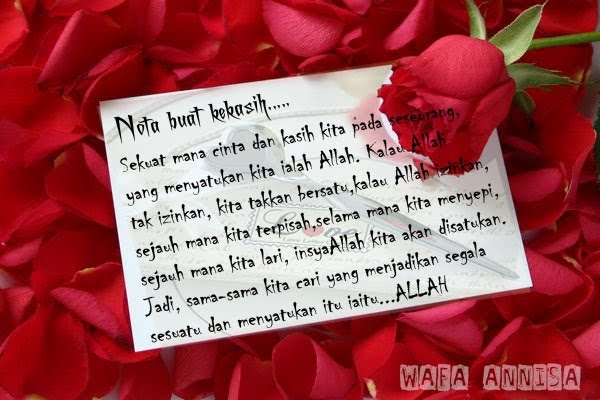 Nota buat kekasih.....
Sekuat mana cinta dan kasih kita pada seseorang,
yang menyatukan kita ialah Allah. Kalau Allah
tak izinkan, kita takkan bersatu,kalau Allah izinkan,
sejauh mana kita terpisah,selama mana kita menyepi,
sejauh mana kita lari, insyaAllah kita akan disatukan.
Jadi, sama-sama kita cari yang menjadikan segala
sesuatu dan menyatukan itu iaitu...ALLAH
WAFA ANNISA